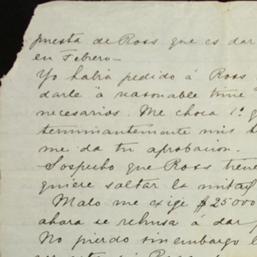 puesta de Ross que es dar
en Febrero—
Yo habia pedido á Ross
darle á reasonable time
necesarios. Me choca 1º q
terminantemente mis
me da tu aprobacion.
Sospecho que Ross tiene
quiere saltar la mitad
Malo me exige $25000
ahora se rehusa á dar
No pierdo sin embargo l